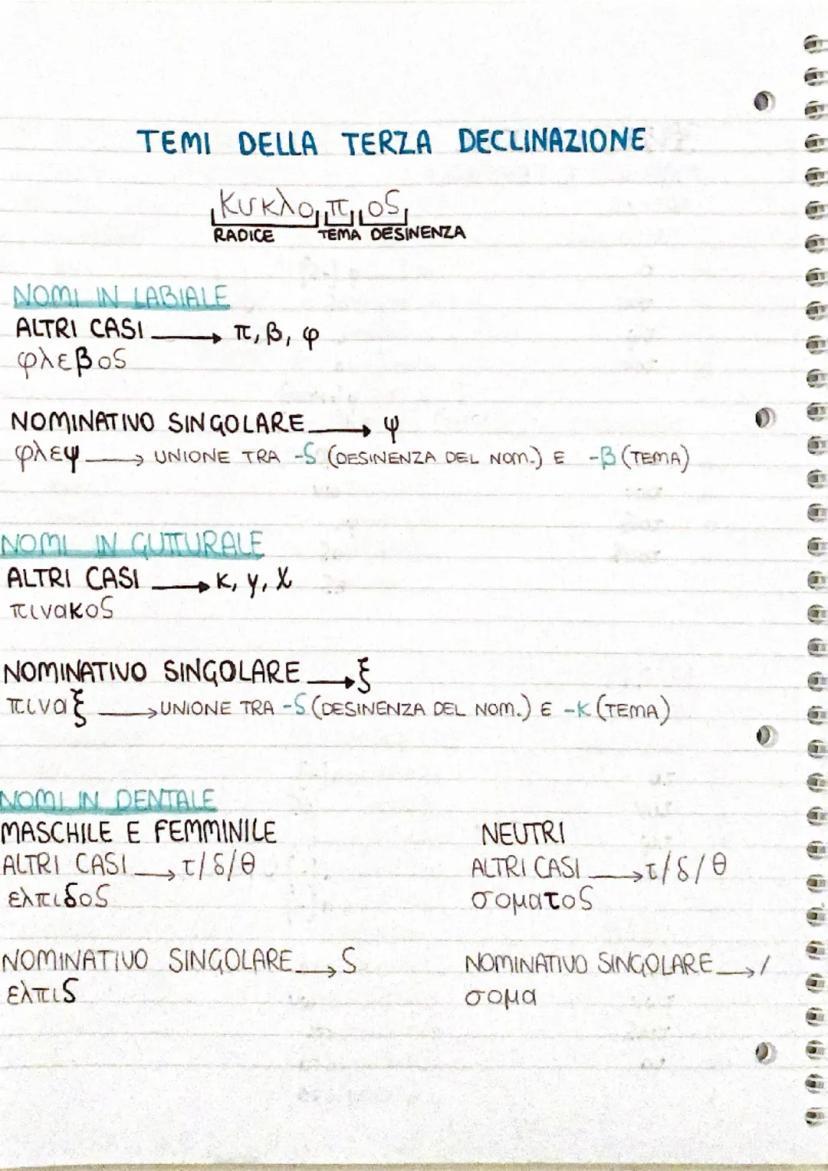 TEMI DELLA TERZA DECLINAZIONE
κυκλο π ος
RADICE TEMA DESINENZA
NOMI IN LABIALE
ALTRI CASI → π, β, φ
φλεβος
NOMINATIVO SINGOLARE → ψ
φλεψ → UNIONE TRA -ς (DESINENZA DEL NOM.) E -β (TEMA)
NOMI IN GUTTURALE
ALTRI CASI → κ, γ, χ
πινακος
NOMINATIVO SINGOLARE → ξ
πιναξ → UNIONE TRA -ς (DESINENZA DEL NOM.) E -κ (TEMA)
NOMI IN DENTALE
MASCHILE E FEMMINILE
ALTRI CASI → τ/δ/θ
ελπιδος
NOMINATIVO SINGOLARE → ς
ελπις
NEUTRI
ALTRI CASI → τ/δ/θ
σοματος
NOMINATIVO SINGOLARE → /
σομα